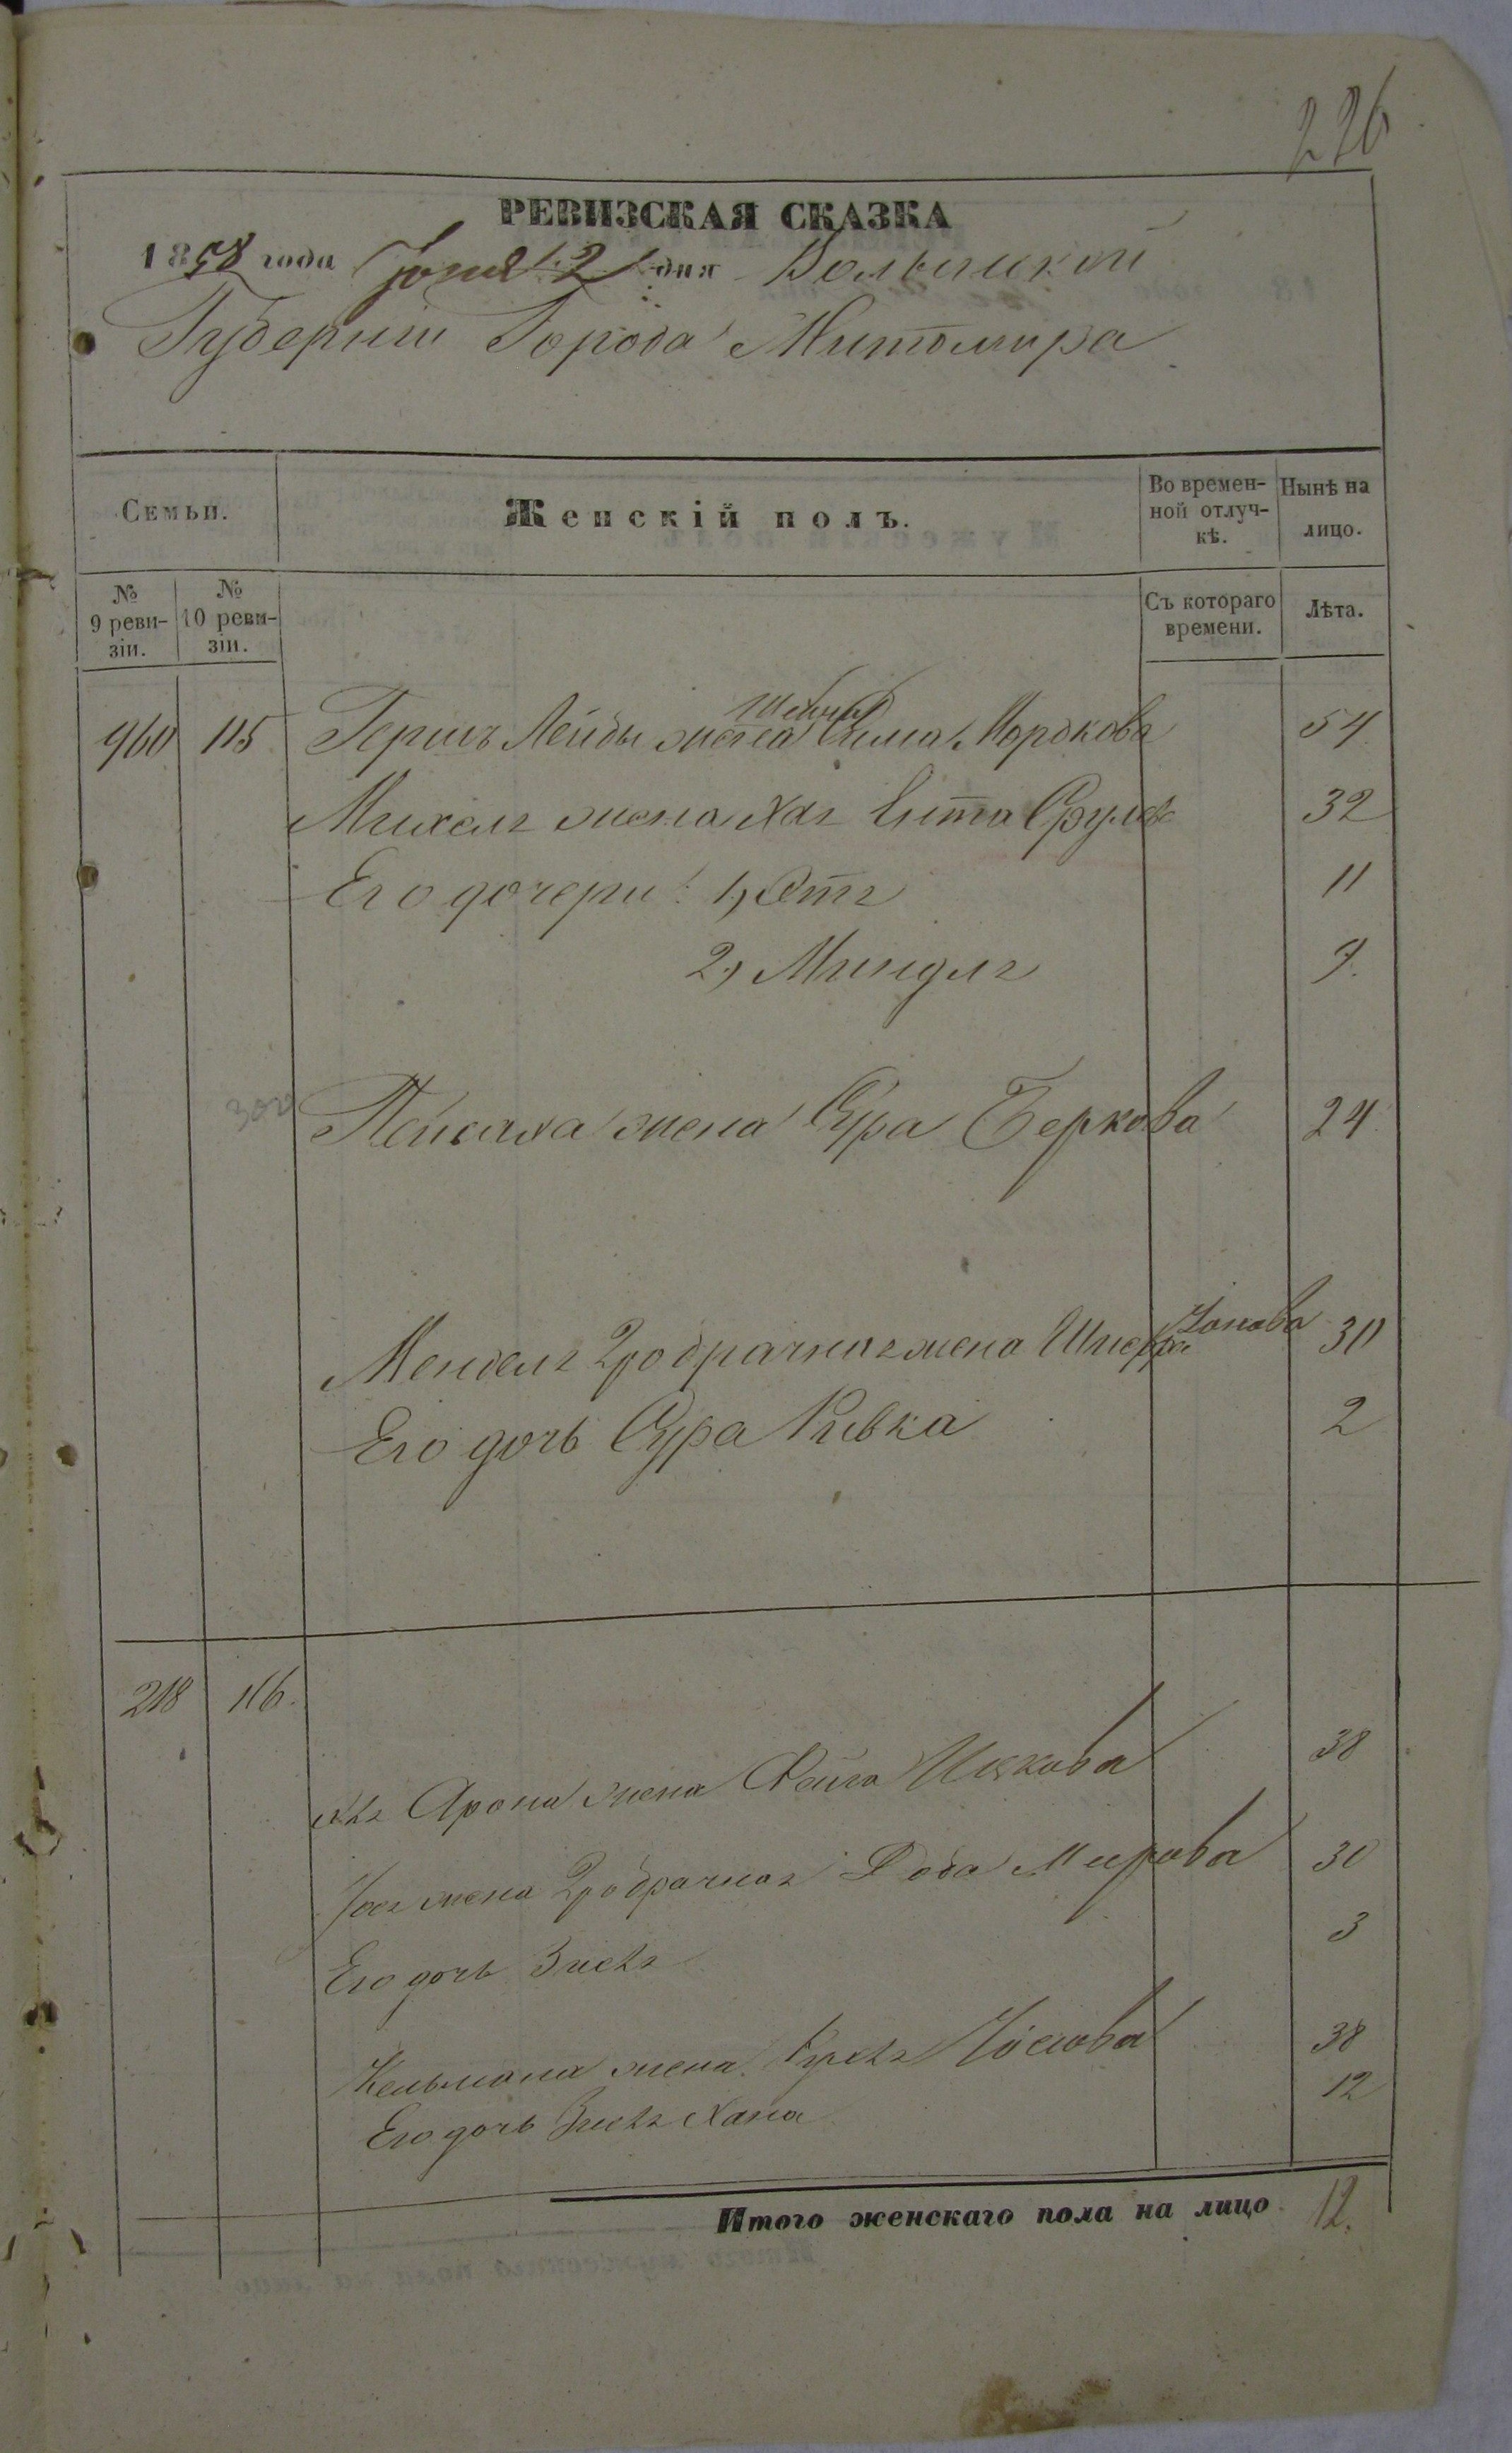 226
РЕВИЗСКАЯ СКАЗКА
1858 года Іюня 2 дня Волынской
Губерніи Города Житомира
Семьи.
Женскій полъ.
Во времен-
ной отлуч-
кѣ.
Нынѣ на
лицо.
№
9 реви-
зіи.
№
10 реви-
зіи.
Съ котораго
времени.
Лѣта.
960 115 Гершъ Лейбы жена Сима Мордкова 54
Михеля жена Хая Ента Срулев 32
Его дочери: 1, Этя 11
2, Миндля 9.
Пейсаха жена Сура Беркова 24
Менделя 2го брачная жена Шифра Іонова 30
Его дочь Сура Ривка 2
218 116.
Арона жена Фейга Ицкова 38
жена 2го брачная Доба Меерова 30
Его дочь Зися 3
Кельмана жена Іосіова 38
Его дочь Хана 12
Итого женскаго пола на лицо 12.